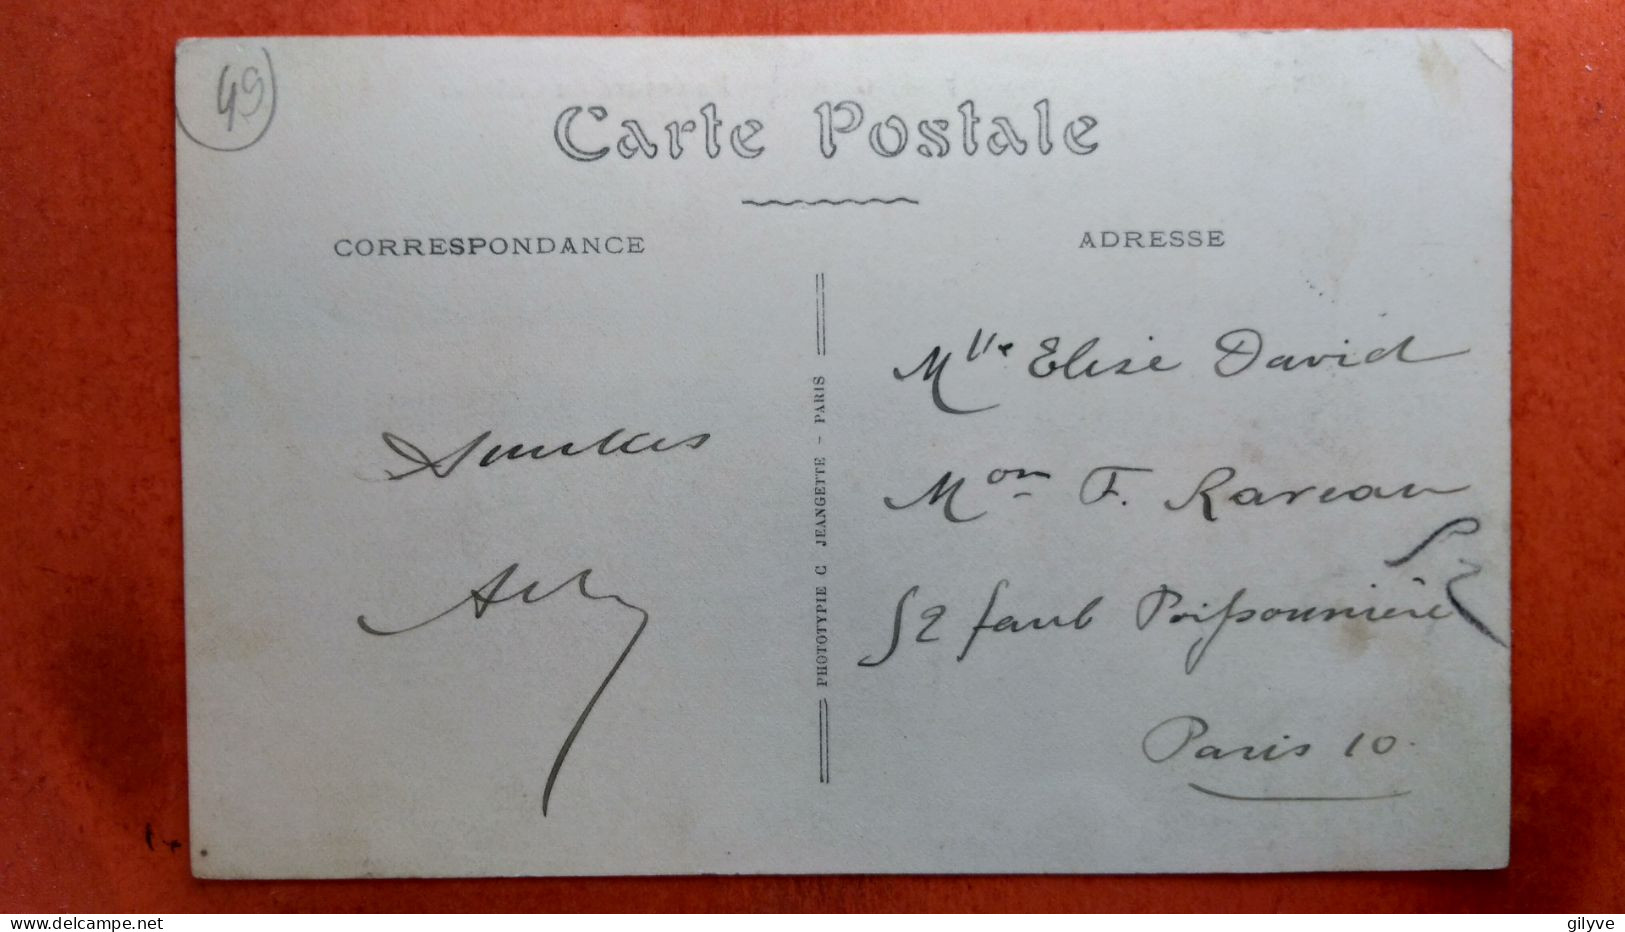 49
Carte Postale
CORRESPONDANCE
ADRESSE
Mlle Elise David
Mon F. Raveau
52 faub Poissonnière
Paris 10.
PHOTOTYPIE C JEANGETTE - PARIS
www.delcampe.net
gilyve